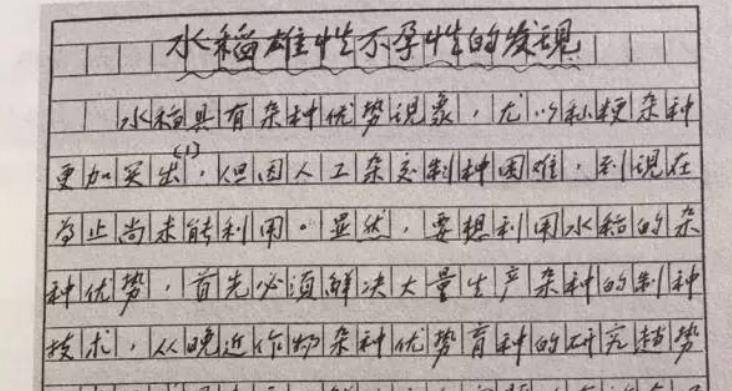 水稻雄性不孕性的发现
水稻具有杂种优势现象，尤以籼粳杂种
更加突出(1)，但因人工杂交制种困难，到现在
为止尚未能利用。显然，要想利用水稻的杂
种优势，首先必须解决大量生产杂种的制种
技术，从晚近作物杂种优势育种的研究趋势